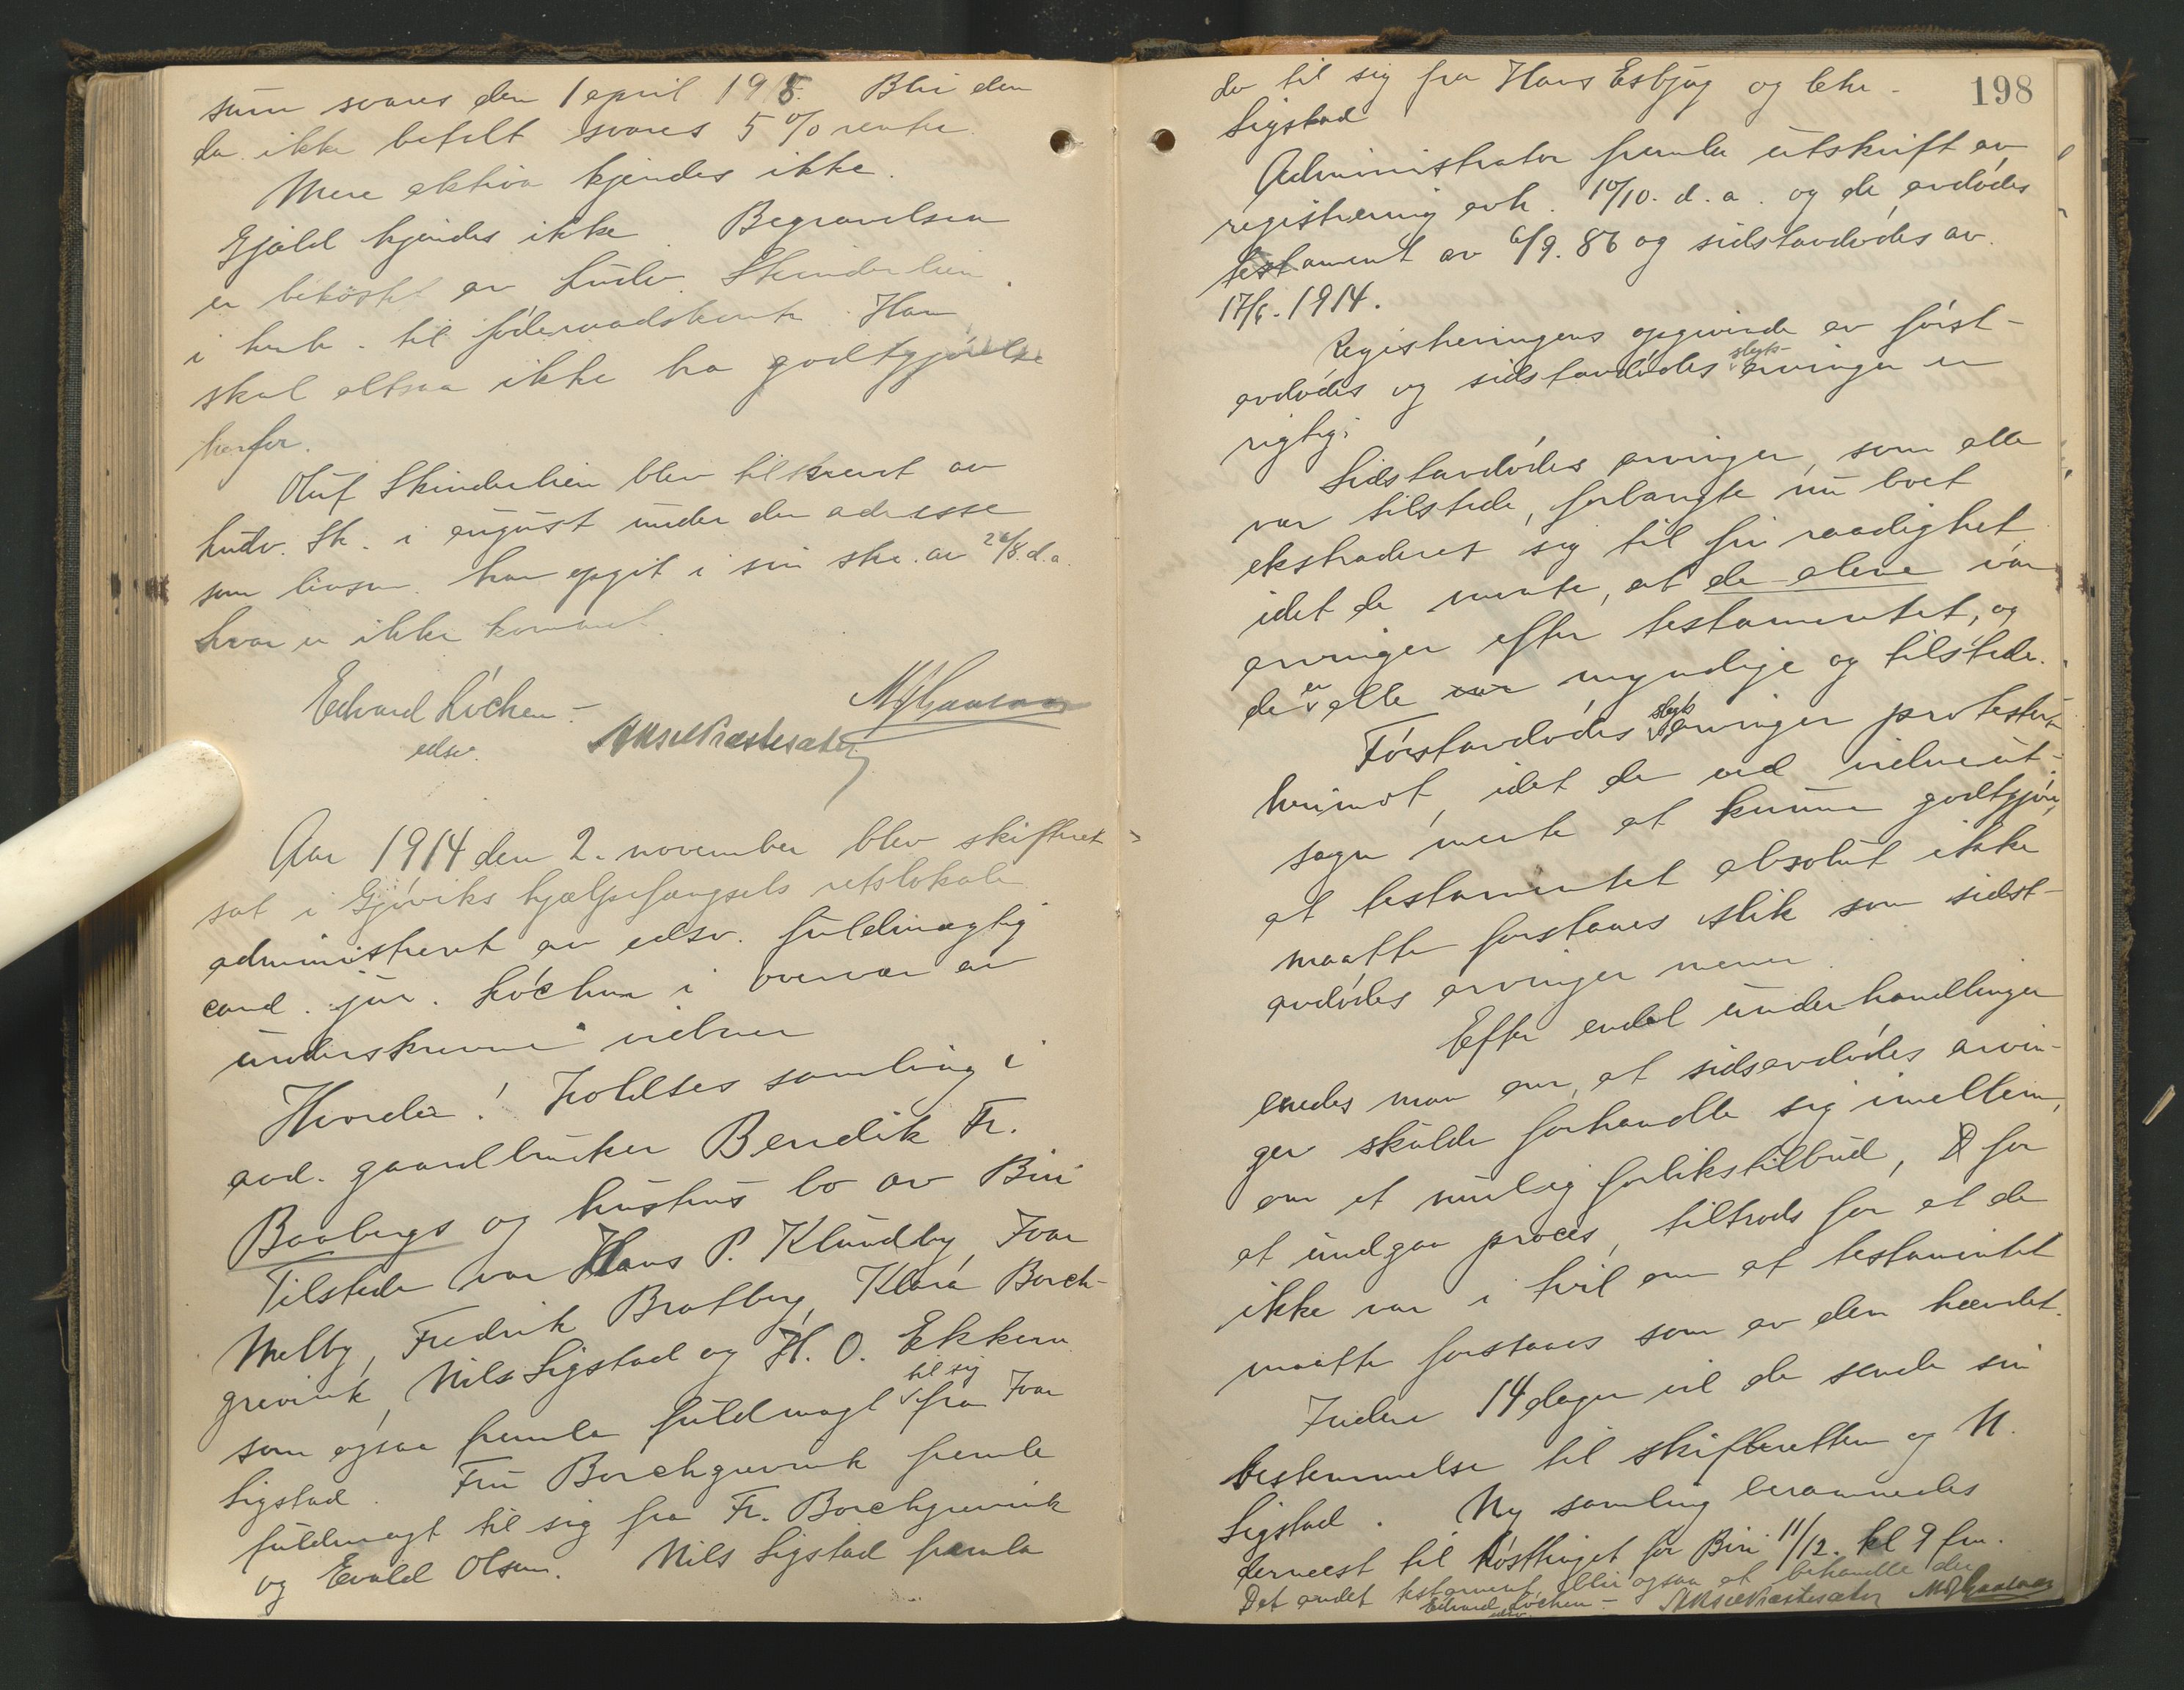 sum svares den 1 april 1915. Blir den
da ikke betalt svares 5 % rente.
Mere aktiva kjendes ikke.
Gjæld kjendes ikke. Begravelsen
er bekostet av Ludv. Skinderlien
i henh. til föderaadskontr. Han
skal altsaa ikke ha godtgjörelse
herfor.
Oluf Skinderlien blev tilskrevet av
Ludv. Sk. i august under den adresse
som har opgit i sin skr. av 26/8. d.a.
Svar er ikke kommet.
Edvard Löchen
edsv.
Aar 1914 den 2. november blev skifteret
sat i Gjöviks hjælpefængsels retslokale
administrert av edsv. fuldmægtig
cand. jur. Löchen i overvær av
underskrevne vidner
Hvorda! Holdtes samling i
avd. gaardbruker Bendik Fr.
Baabergs og hustrus bo av Biri
Tilstede var Hans P. Klundby, Ivar
Melby, Fredrik Bratberg, Klara Borch-
grevink, Nils Sigstad og H. O. Ekkern
som ogsaa fremla fuldmagt til sig fra Ivar
Sigstad. Fru Borchgrevink fremla
fuldmagt til sig fra Fr. Borchgrevink
og Evald Olsen. Nils Sigstad fremla
198
do til sig fra Hans Esbjug og
Sigstad
Administrator fremla utskrift av
registrering avh. 10/10. d. a. og de avdödes
testament av 6/9. 86 og sidstavdödes av
17/6. 1914.
Registreringens opgivende av först-
avdödes og sidstavdödes slegts- arvinger er
rigtig.
Sidstavdödes arvinger, som alle
var tilstede, forlangte nu boet
ekstraderet sig til fri raadighet
idet de mente, at de alene var
arvinger efter testamentet, og
de er alle var myndige og tilstede.
Förstavdödes slegts arvinger protesterte
herimot, idet de ved vidneut-
sagn mente at kunne godtgjöre,
at testamentet absolut ikke
maatte forstaaes slik som sidst-
avdödes arvinger mener.
Efter endel underhandlinger
enedes man om, at sidsavdödes arvin-
ger skulde forhandle sig imellem,
om et mulig forlikstilbud, for
at undgaa proces, tiltrods for at de
ikke var i tvil om at testamentet
maatte forstaaes som av dem hævdet.
Inden 14 dager vil de sende sin
bestemmelse til skifteretten og N.
Sigstad. Ny samling berammedes
dernæst til hösttinget for Biri 11/12. kl 9 fm.
Det andet testament blir ogsaa at behandle da
Edvard Löchen
edsv.